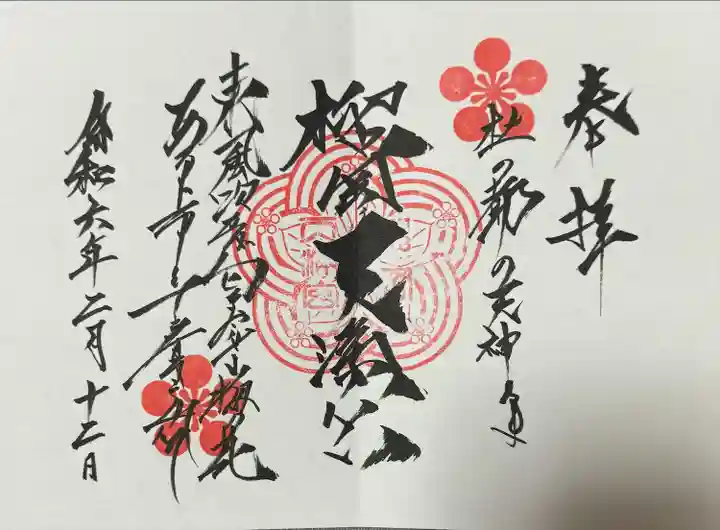 奉拝
杜の都の天神さま
榴岡天満宮
東風吹かば匂ひおこせよ梅の花
あるじなしとて春な忘れそ
令和六年二月十二日